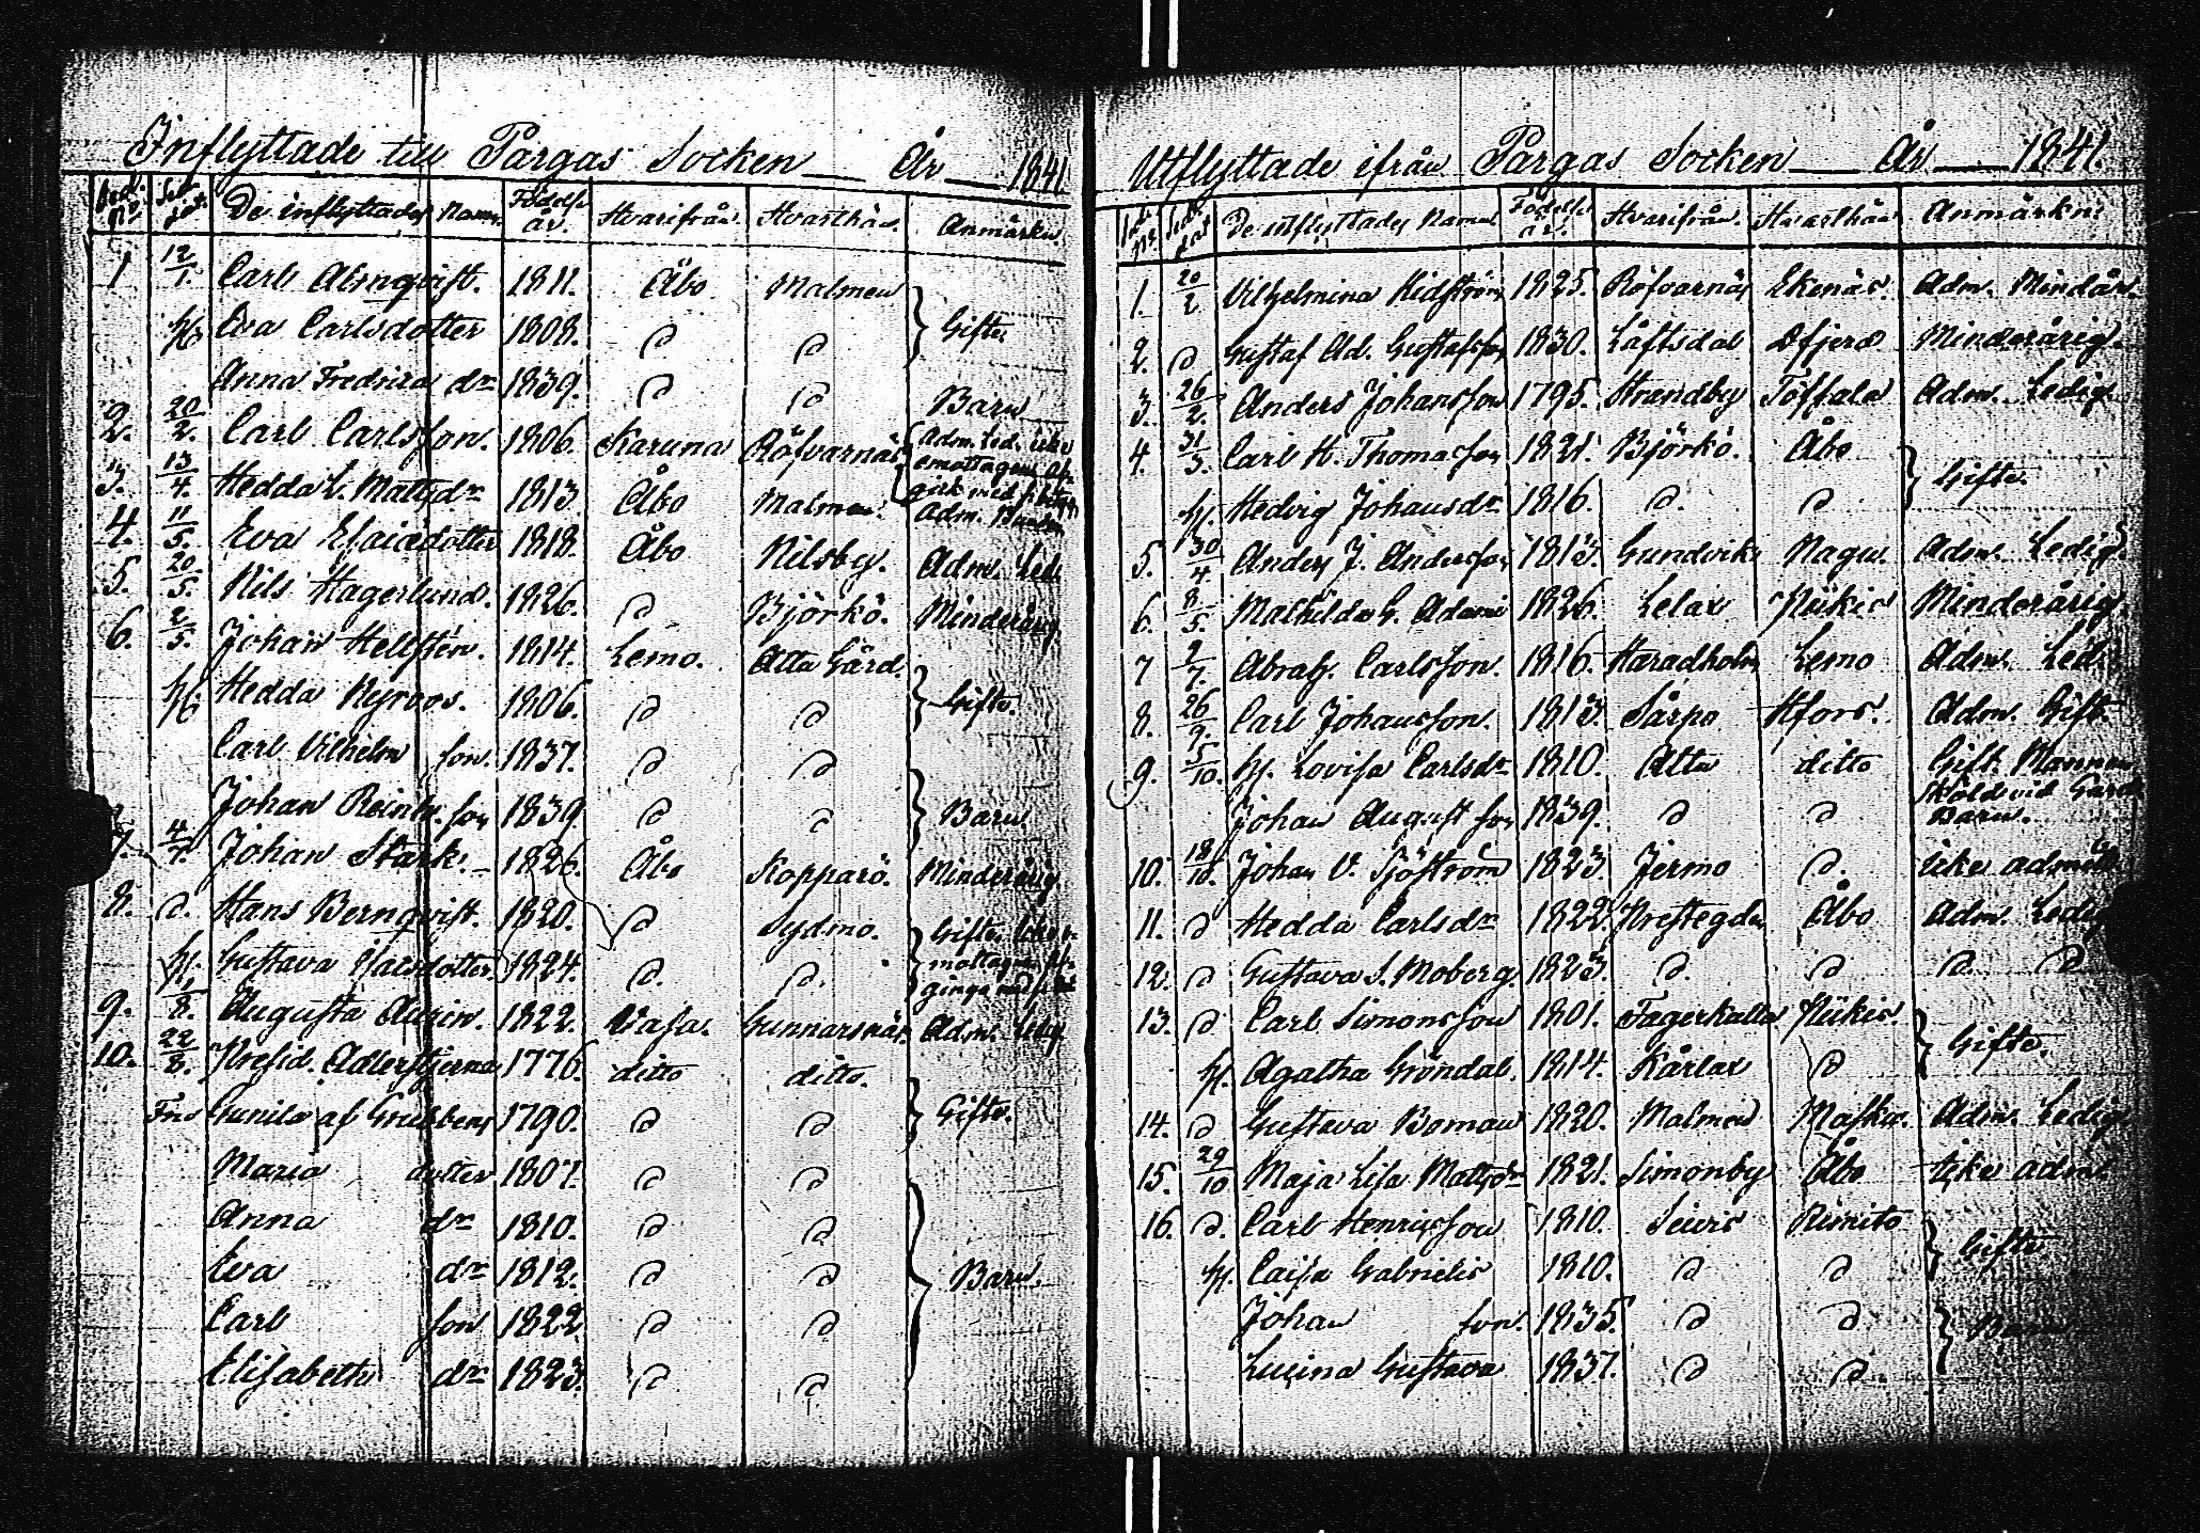 Inflyttade till Pargas Socken — År — 1841
De inflyttades Namn. Födelse år. Hvarifrån. Hvarthän. Anmärkn.
1 12/1. Carl Almqvist. 1811. Åbo Malmen
h. Eva Carlsdotter 1808. D D } Gifte.
Anna Fredrica dr 1839. D D Barn
2. 20/2. Carl Carlsson. 1806. Karuna Röfvarnäs
3. 13/4. Hedda L. Mattsdr 1813. Åbo Malmen.
4. 11/5. Eva Esaiædotter 1818. Åbo Nilsby. Adm. Led.
5. 20/5. Nils Hagerlund. 1826. D Björkö. Minderårig.
6. 2/5. Johan Hellstén. 1814. Lemo. Atta Gård.
h. Hedda Nyroos. 1806. D D } Gifte.
Carl Vilhelm son. 1837. D D
Johan Reinh. son 1839 D D } Barn.
7. 4/7. Johan Stark. 1826. Åbo Kopparö. Minderårig.
8. D. Hans Bernqvist. 1820. D Sydmo. Gifte
h. Gustava Isacsdotter. 1824. D. D.
9. 1/8. Augusta Aurin. 1822. Vasa. Gunnarsnäs. Adm. Ledig.
10. 22/8. Presid. Adlerstjerna 1776. ditto ditto.
Fru Gunila af Grubbens 1790. D D } Gifte.
Maria dotter 1807. D D
Anna dr 1810. D D
Eva dr 1812. D D } Barn.
Carl son 1822 D D
Elisabeth dr 1823. D D
Utflyttade ifrån Pargas Socken — År — 1841.
De utflyttades Namn. Födelse år. Hvarifrån. Hvarthän Anmärkn:
1. 20/2 Vilhelmina Hidström 1825. Röfvarnäs Ekenäs. Adm. Mindår.
2. D Gustaf Ad. Gustafsson 1830. Låftsdal Minderårig.
3. 26/2. Anders Johansson 1795. Strandby Töffala Adm. Ledig.
4. 31/3. Carl H. Thomasson 1821. Björkö. Åbo
h. Hedvig Johansdr 1816. D. D } Gifte.
5. 30/4 Anders J. Andersson 1813. Gundvik Nagu. Adm. Ledig.
6. 8/5. Mathilda G. Adami 1826. Lelax Pükis Minderårig.
7 2/7. Abrah. Carlsson. 1816. Haradholm Lemo Adm. Led.
8. 26/9. Carl Johansson. 1813. Sårpo Hfors. Adm. Gift.
9. 5/10. h. Lovisa Carlsdr 1810. Atta ditto Gift. Mannen
Johan August son 1839. D D Barn.
10. 18/10. Johan V. Sjöström 1823. Jermo D. icke admit.
11. D Hedda Carlsdr 1822. Prestegden Åbo Adm. Ledig
12. D Gustava S. Moberg. 1823. D. D D. D
13. D Carl Simonsson 1801. Fagerkulla Pükis.
h. Agatha Gröndal. 1814. Kårlax D } Gifte.
14. D Gustava Boman 1820. Malmen Masku. Adm. Ledig.
15. 29/10 Maja Lisa Mattsdr 1821. Simonby Åbo icke adm.
16. D. Carl Henricsson 1810. Rimito
h. Caisa Gabrielis 1810. D D } Gifte.
Johan son. 1835. D D
Lucina Gustava 1837. D D. } Barn